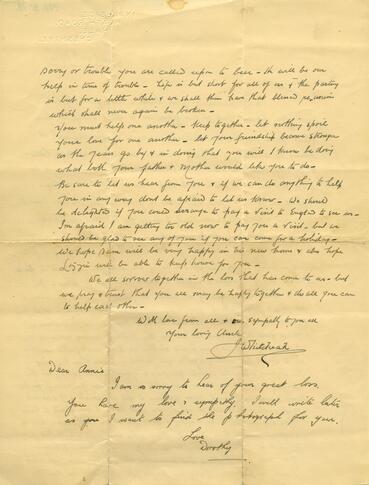 sorrow or trouble you are called upon to bear - He will be our
help in time of trouble - Life is but short for all of us & the parting
is but for a little while & we shall then have that blessed re-union
which shall never again be broken -
You must help one another - keep together - let nothing spoil
your love for one another - let your friendship become stronger
as the years go by & in doing that you will I know be doing
what both your father & Mother would like you to do -
Be sure to let us hear from you & if we can do anything to help
you in any way dont be afraid to let us know - We should
be delighted if you could arrange to pay a visit to England to see us -
I'm afraid I am getting too old now to pay you a visit - but we
should be glad to see any of you if you can come for a holiday -
We hope will be very happy in his new home & also hope
Lizzie will be able to keep house for you -
We all sorrow together in the loss that has come to us - but
we pray & trust that you all may be happy together & do all you can
to help each other -
With love from all & our sympathy to you all
Your loving Uncle
J
Dear Annie
I am so sorry to hear of your great loss.
You have my love & sympathy. I will write later
as you I want to find the photograph for you.
Love
Dorothy